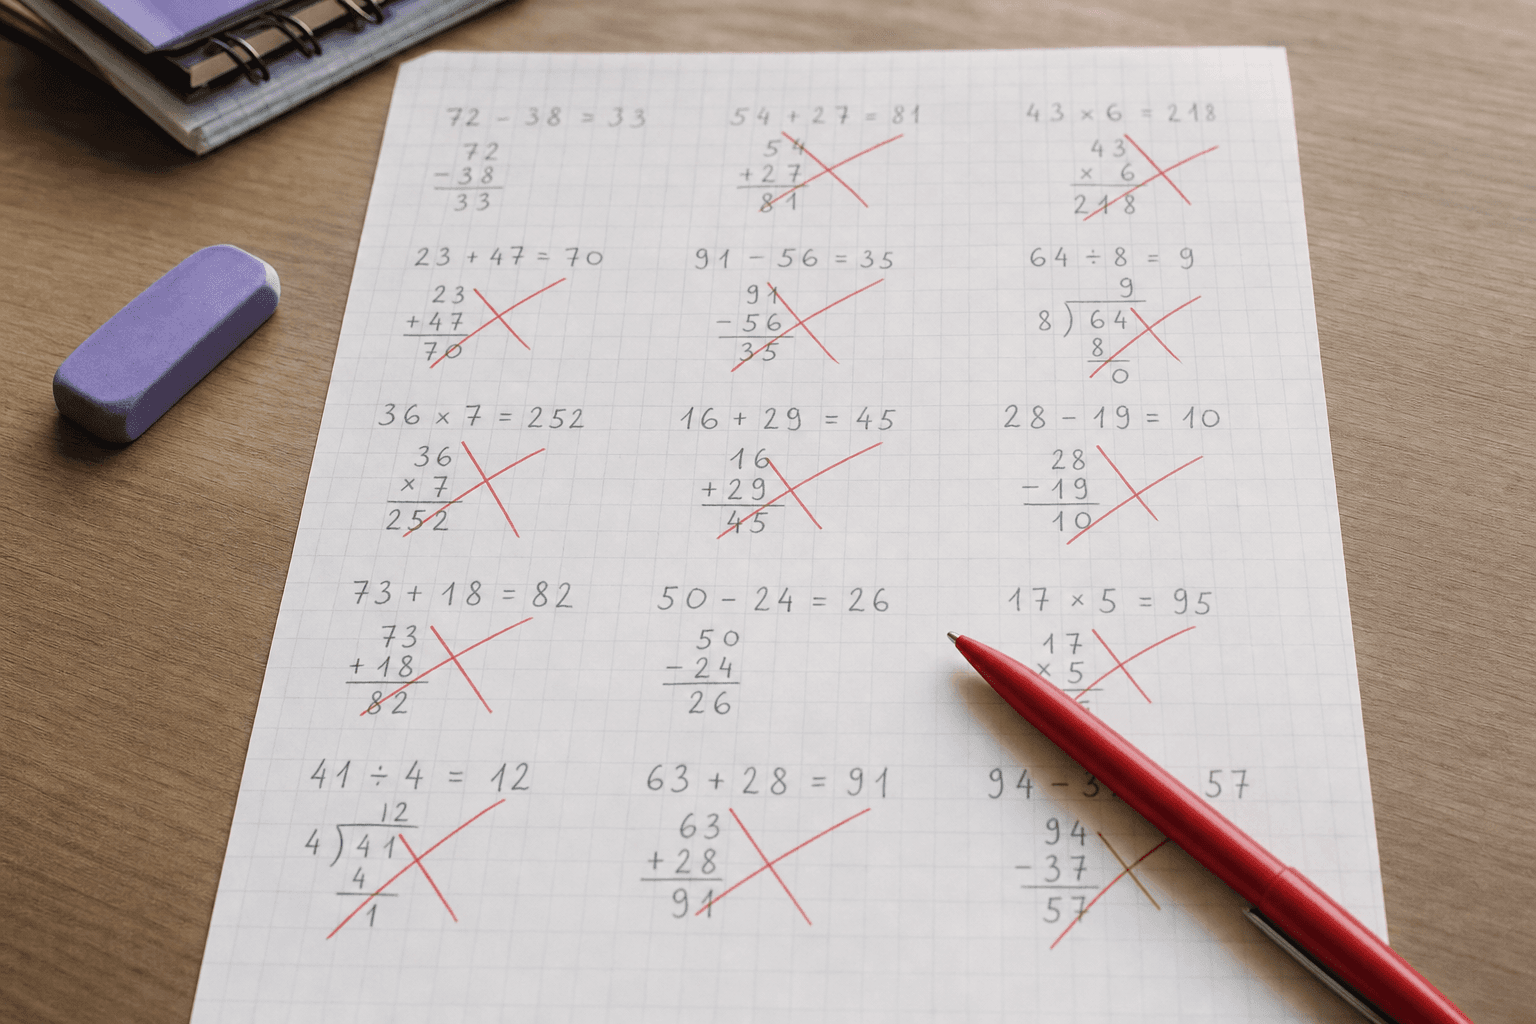 72 - 38 = 33
54 + 27 = 81
43 × 6 = 218
72
- 38
33
54
+ 27
81
43
× 6
218
23 + 47 = 70
91 - 56 = 35
64 ÷ 8 = 9
23
+ 47
70
91
- 56
35
9
8 ) 64
8
0
36 × 7 = 252
16 + 29 = 45
28 - 19 = 10
36
× 7
252
16
+ 29
45
28
- 19
10
73 + 18 = 82
50 - 24 = 26
17 × 5 = 95
73
+ 18
82
50
- 24
26
17
× 5
41 ÷ 4 = 12
63 + 28 = 91
94 - 3 57
12
4 ) 41
4
1
63
+ 28
91
94
- 37
57